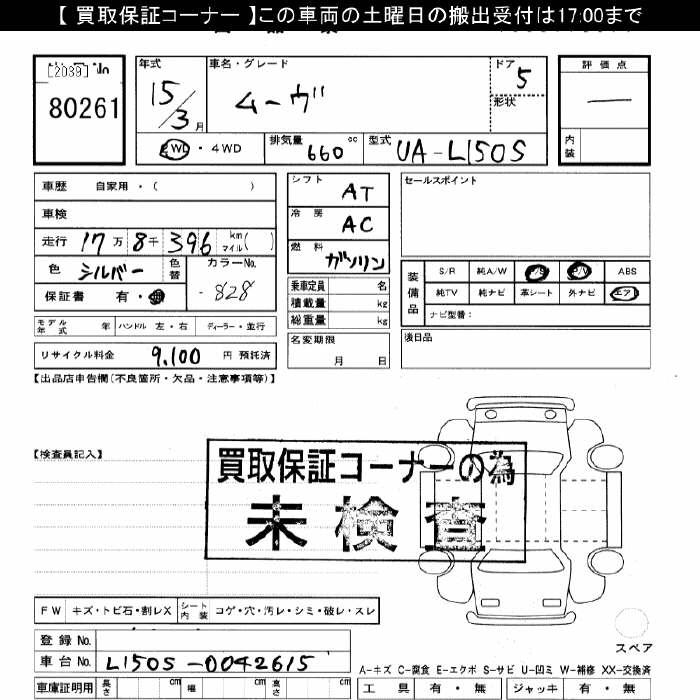 【 買取保証コーナー 】この車両の土曜日の搬出受付は17:00まで
[2039]
80261
年式 15/3 月
車名・グレード ムーヴ
ドア 5
形状
評価点 —
内装
2WD・4WD
排気量 660 cc
型式 UA-L150S
車歴 自家用・( )
車検
走行 17万 8千 396 km マイル( )
色 シルバー 色替 カラーNo. -828
保証書 有・無
モデル年式 年 ハンドル 左・右 ディーラー・並行
リサイクル料金 9,100 円 預託済
シフト AT
冷房 AC
燃料 ガソリン
乗車定員 名
積載量 kg
総重量 kg
名変期限 月 日
セールスポイント
装備品 S/R 純A/W P/S P/W ABS
純TV 純ナビ 革シート 外ナビ エアB
ナビ型番:
後日品
【出品店申告欄(不良箇所・欠品・注意事項等)】
【検査員記入】
買取保証コーナーの為
未検査
FW キズ・トビ石・割レX シート内装 コゲ・穴・汚レ・シミ・破レ・スレ
登録 No.
車台 No. L150S-0042615
車庫証明用 長さ cm 幅 cm 高さ cm
スペア
A-キズ C-腐食 E-エクボ S-サビ U-凹ミ W-補修 XX-交換済
工具 有・無 ジャッキ 有・無